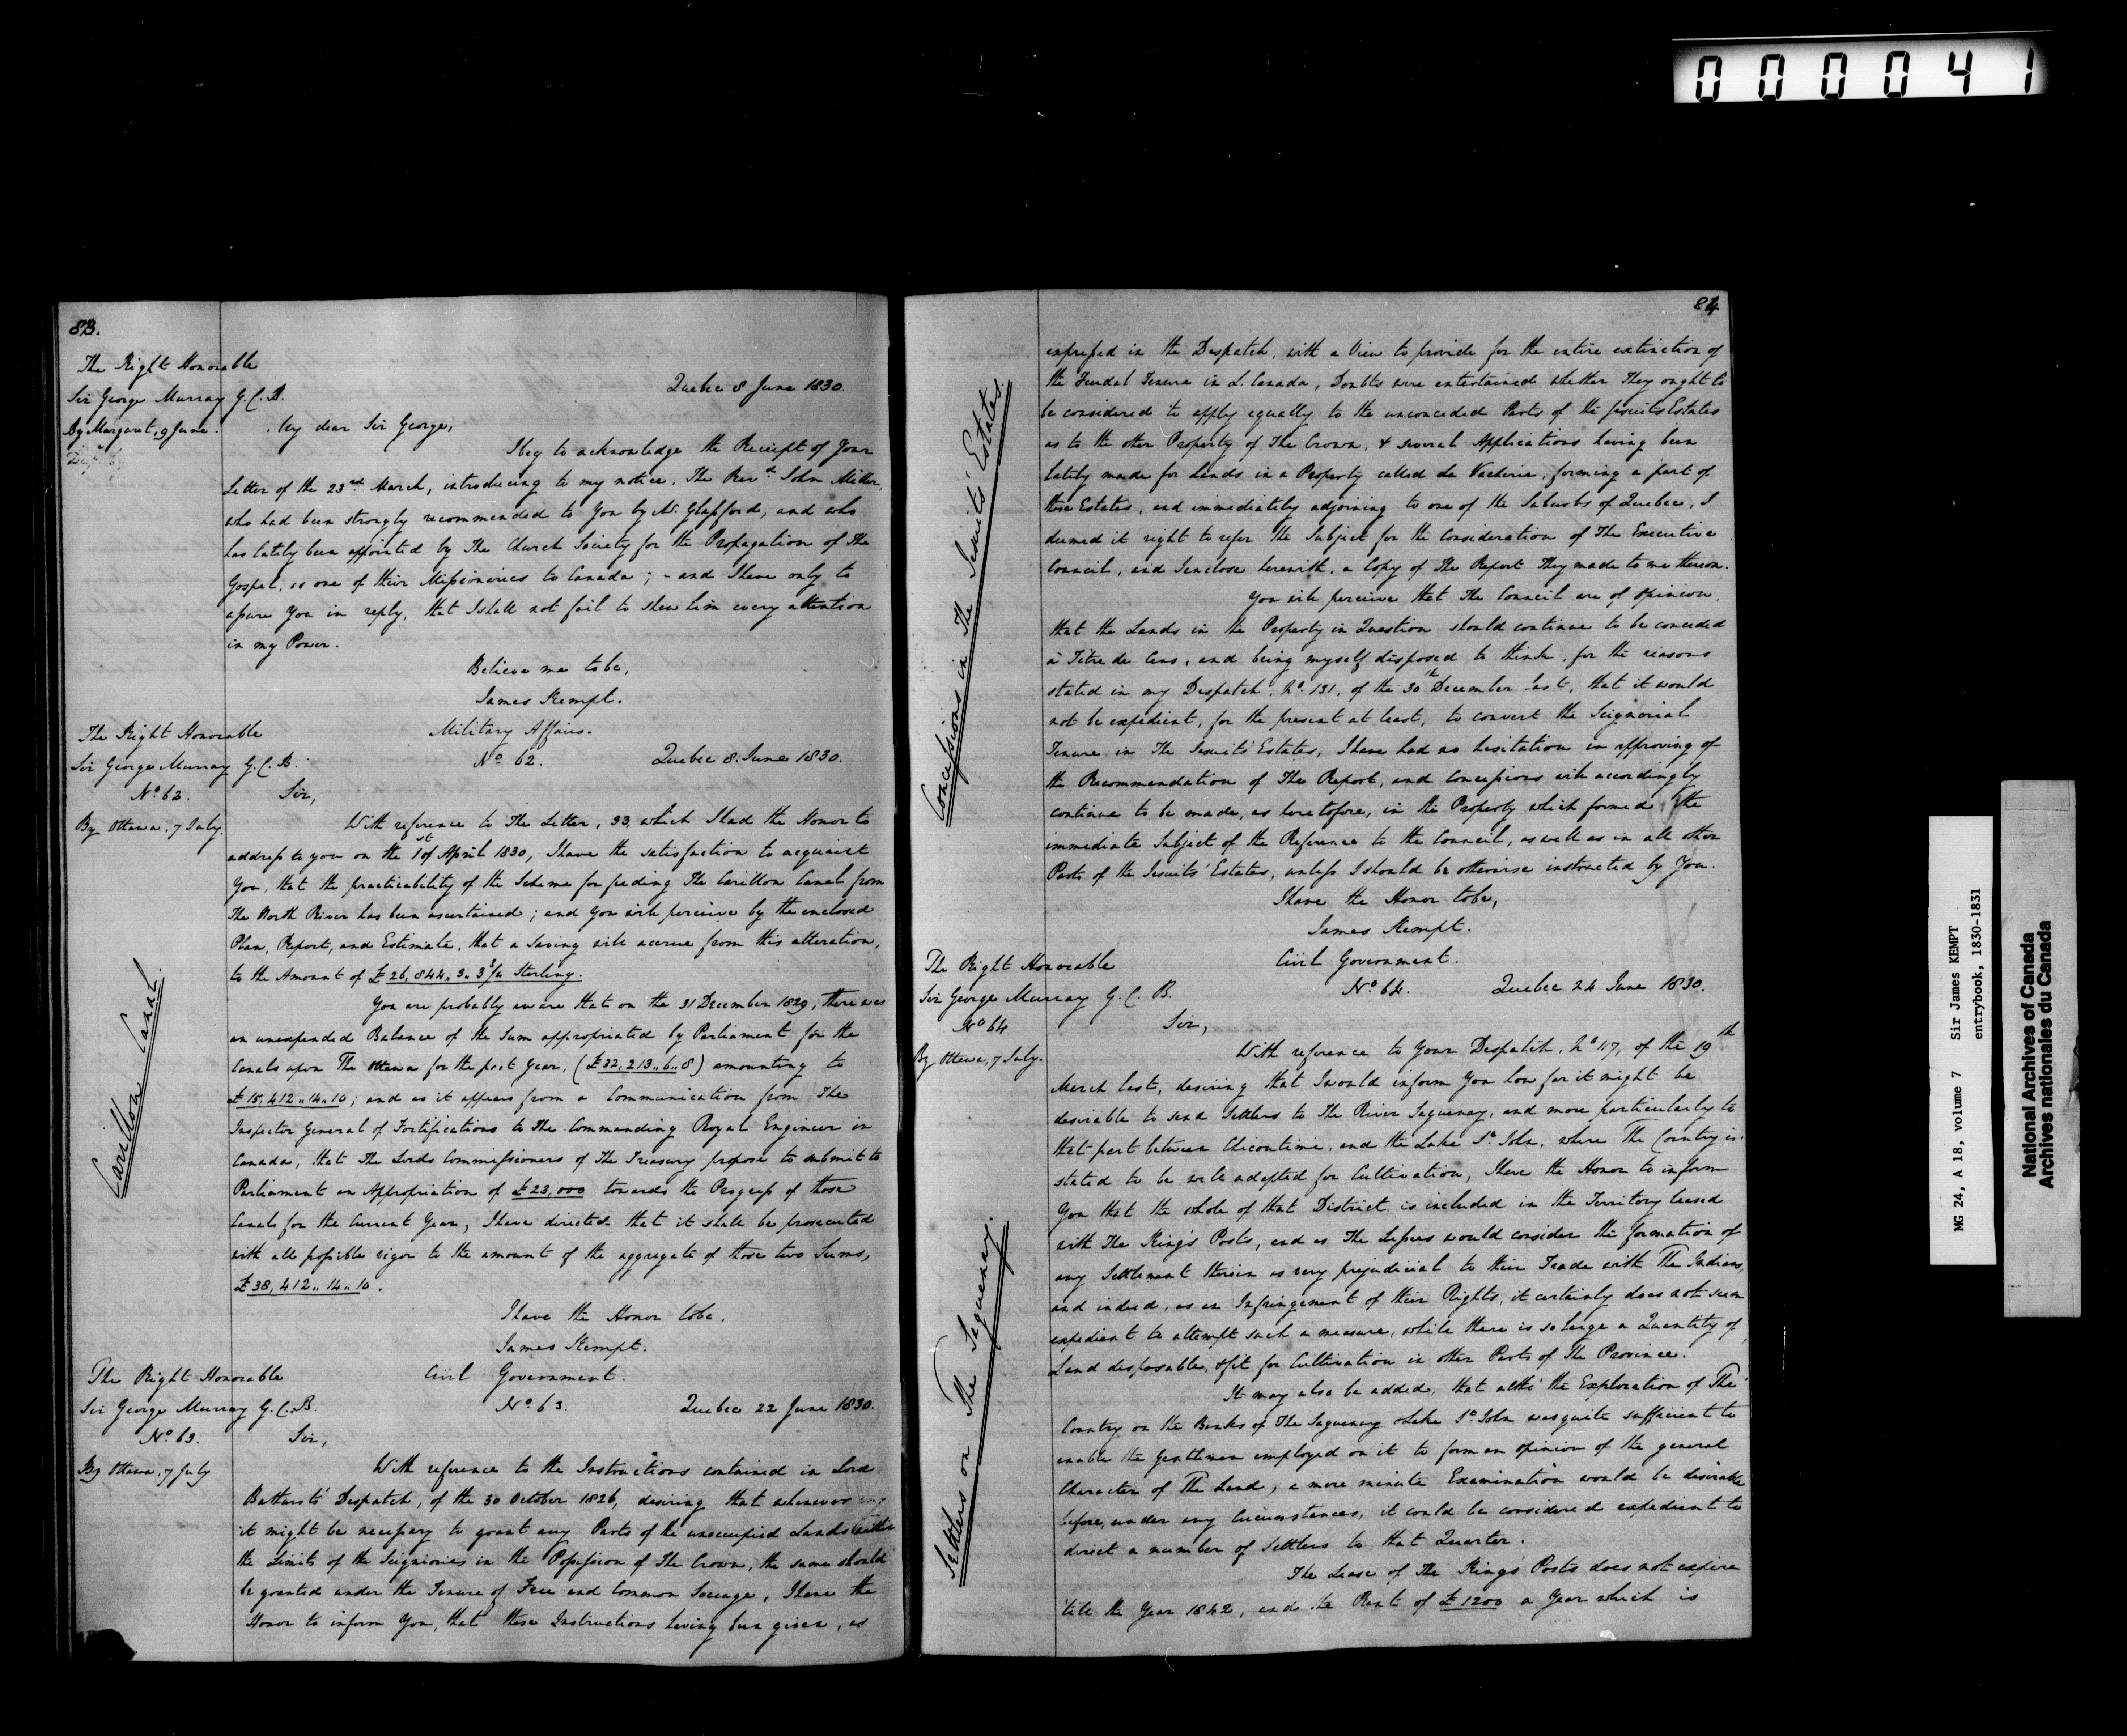 000041
83.
The Right Honorable
Sir George Murray G.C.B.
Quebec 8 June 1830.
By Margaret, 9 June.
My dear Sir George,
I beg to acknowledge the Receipt of Your
Letter of the 23rd March, introducing to my notice, The Revd. John Miller,
who had been strongly recommended to You by Mr. Glassford, and who
has lately been appointed by The Church Society for the Propagation of The
Gospel, as one of their Missionaries to Canada; - and I have only to
assure You in reply, that I shall not fail to shew him every attention
in my Power.
Believe me to be,
James Kempt.
The Right Honorable
Military Affairs.
Sir George Murray G.C.B.
No. 62.
Quebec 8. June 1830.
No. 62.
Sir,
By Ottawa, 7 July.
With reference to The Letter, 33, which I had the Honor to
address to you on the 1st of April 1830, I have the satisfaction to acquaint
You, that the practicability of the Scheme for feeding The Carillon Canal from
The North River has been ascertained; and You will perceive by the enclosed
Plan, Report, and Estimate, that a Saving will accrue from this alteration,
to the Amount of £26,844.. 3.. 3 3/4 Sterling.
Carillon Canal.
You are probably aware that on the 31 December 1829, there was
an unexpended Balance of the Sum appropriated by Parliament for the
Canals upon The Ottawa for the past Year, (£22,213..6..8) amounting to
£15,412..14..10; and as it appears from a Communication from The
Inspector General of Fortifications to The Commanding Royal Engineer in
Canada, that The Lords Commissioners of The Treasury propose to submit to
Parliament an Appropriation of £23,000 towards the Progress of those
Canals for the Current Year, I have directed that it shall be prosecuted
with all possible vigor to the amount of the aggregate of those two Sums,
£38,412..14..10.
I have the Honor to be,
James Kempt.
The Right Honorable
Civil Government.
Sir George Murray G.C.B.
No. 63.
Quebec 22 June 1830.
No. 63.
Sir,
By Ottawa, 7 July
With reference to the Instructions contained in Lord
Bathurst's Despatch, of the 30 October 1826, desiring that whenever
it might be necessary to grant any Parts of the unoccupied Lands within
the Limits of the Seigniories in the Possession of The Crown, the same should
be granted under the Tenure of Free and Common Soccage, I have the
Honor to inform You, that these Instructions having been given, as
84
expressed in the Despatch, with a View to provide for the entire extinction of
the Feudal Tenure in L. Canada, Doubts were entertained whether They ought to
be considered to apply equally to the unconceded Parts of the Jesuits Estates
as to the other Property of The Crown, & several Applications having been
lately made for Lands in a Property called La Vacherie, forming a part of
those Estates, and immediately adjoining to one of the Suburbs of Quebec, I
deemed it right to refer the Subject for the Consideration of The Executive
Council, and I enclose herewith, a Copy of The Report They made to me thereon.
Concessions in The Jesuits' Estates.
You will perceive that The Council are of opinion,
that the Lands in the Property in Question should continue to be conceded
à Titre de Cens, and being myself disposed to think, for the reasons
stated in my Despatch, No. 131, of the 30th December last, that it would
not be expedient, for the present at least, to convert the Seignorial
Tenure in The Jesuits' Estates, I have had no hesitation in approving of
the Recommendation of The Report, and Concessions will accordingly
continue to be made, as heretofore, in the Property which formed the
immediate Subject of the Reference to the Council, as well as in all other
Parts of the Jesuits' Estates, unless I should be otherwise instructed by You.
I have the Honor to be,
James Kempt.
The Right Honorable
Civil Government.
Sir George Murray G.C.B.
No. 64.
Quebec 24 June 1830.
No 64
Sir,
By Ottawa, 7 July.
With reference to Your Despatch, No. 117, of the 19th
March last, desiring that I would inform You how far it might be
desirable to send Settlers to The River Saguenay, and more particularly to
that part between Chicoutimi, and the Lake St. John, where The Country is
stated to be well adapted for Cultivation, I have the Honor to inform
You that the whole of that District is included in the Territory leased
with The King's Posts, and as The Lessees would consider the formation of
any Settlement therein as very prejudicial to their Trade with The Indians,
and indeed, as an Infringement of their Rights, it certainly does not seem
expedient to attempt such a measure, while there is so large a Quantity of
Land disposable, & fit for Cultivation in other Parts of The Province.
Settlers on The Saguenay.
It may also be added, that altho' the Exploration of The
Country on the Banks of The Saguenay & Lake St. John was quite sufficient to
enable the Gentlemen employed on it to form an opinion of the general
Character of The Land, a more minute Examination would be desirable
before, under any Circumstances, it could be considered expedient to
direct a number of Settlers to that Quarter.
The Lease of The King's Posts does not expire
'till the Year 1842, and the Rent of £1200 a Year which is
MG 24, A 18, volume 7 Sir James KEMPT
entrybook, 1830-1831
National Archives of Canada
Archives nationales du Canada